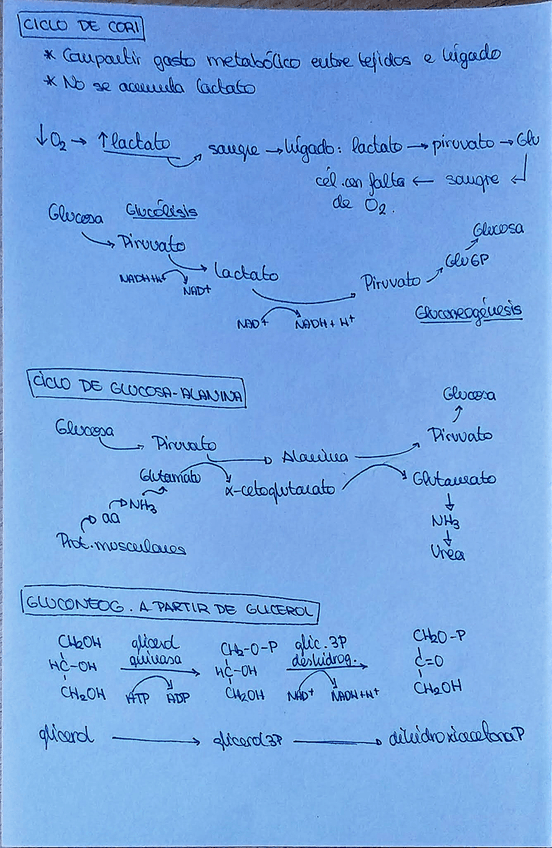 CICLO DE CORI
* Compartir gasto metabólico entre tejidos e hígado
* No se acumula lactato
↓O₂ → ↑lactato → sangre → hígado: lactato → piruvato → Glu
cél. con falta ← sangre ↵
de O₂.
Glucosa Glucólisis
Glucosa
→ Piruvato
Glu6P
NADH+H⁺ NAD⁺
Lactato
Piruvato
Gluconeogénesis
NAD⁺ NADH + H⁺
CICLO DE GLUCOSA-ALANINA
Glucosa
Glucosa → Piruvato → Alanina → Piruvato
Glutamato α-cetoglutarato Glutamato
→ NH₃
aa
NH₃
Prot. musculares
Urea
GLUCONEOG. A PARTIR DE GLICEROL
CH₂OH glicerol CH₂-O-P glic. 3P CH₂O-P
HC-OH quinasa HC-OH deshidrog. C=O
CH₂OH ATP ADP CH₂OH NAD⁺ NADH+H⁺ CH₂OH
glicerol → glicerol3P → dihidroxiacetonaP